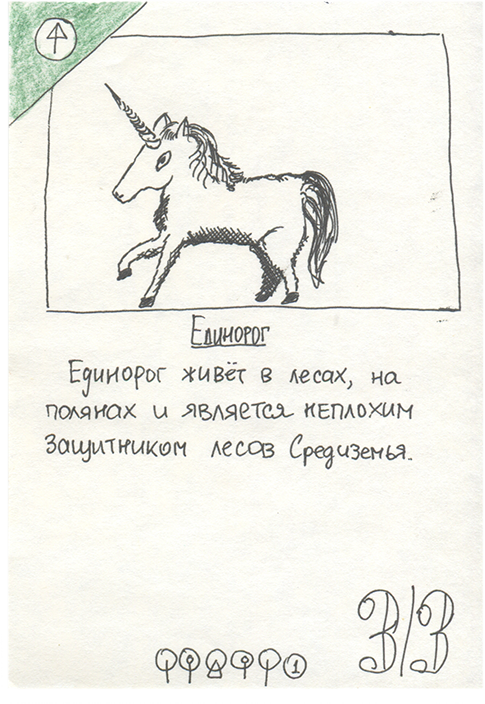 Единорог
Единорог живёт в лесах, на
полянах и является неплохим
защитником лесов Средиземья.
3/3
1